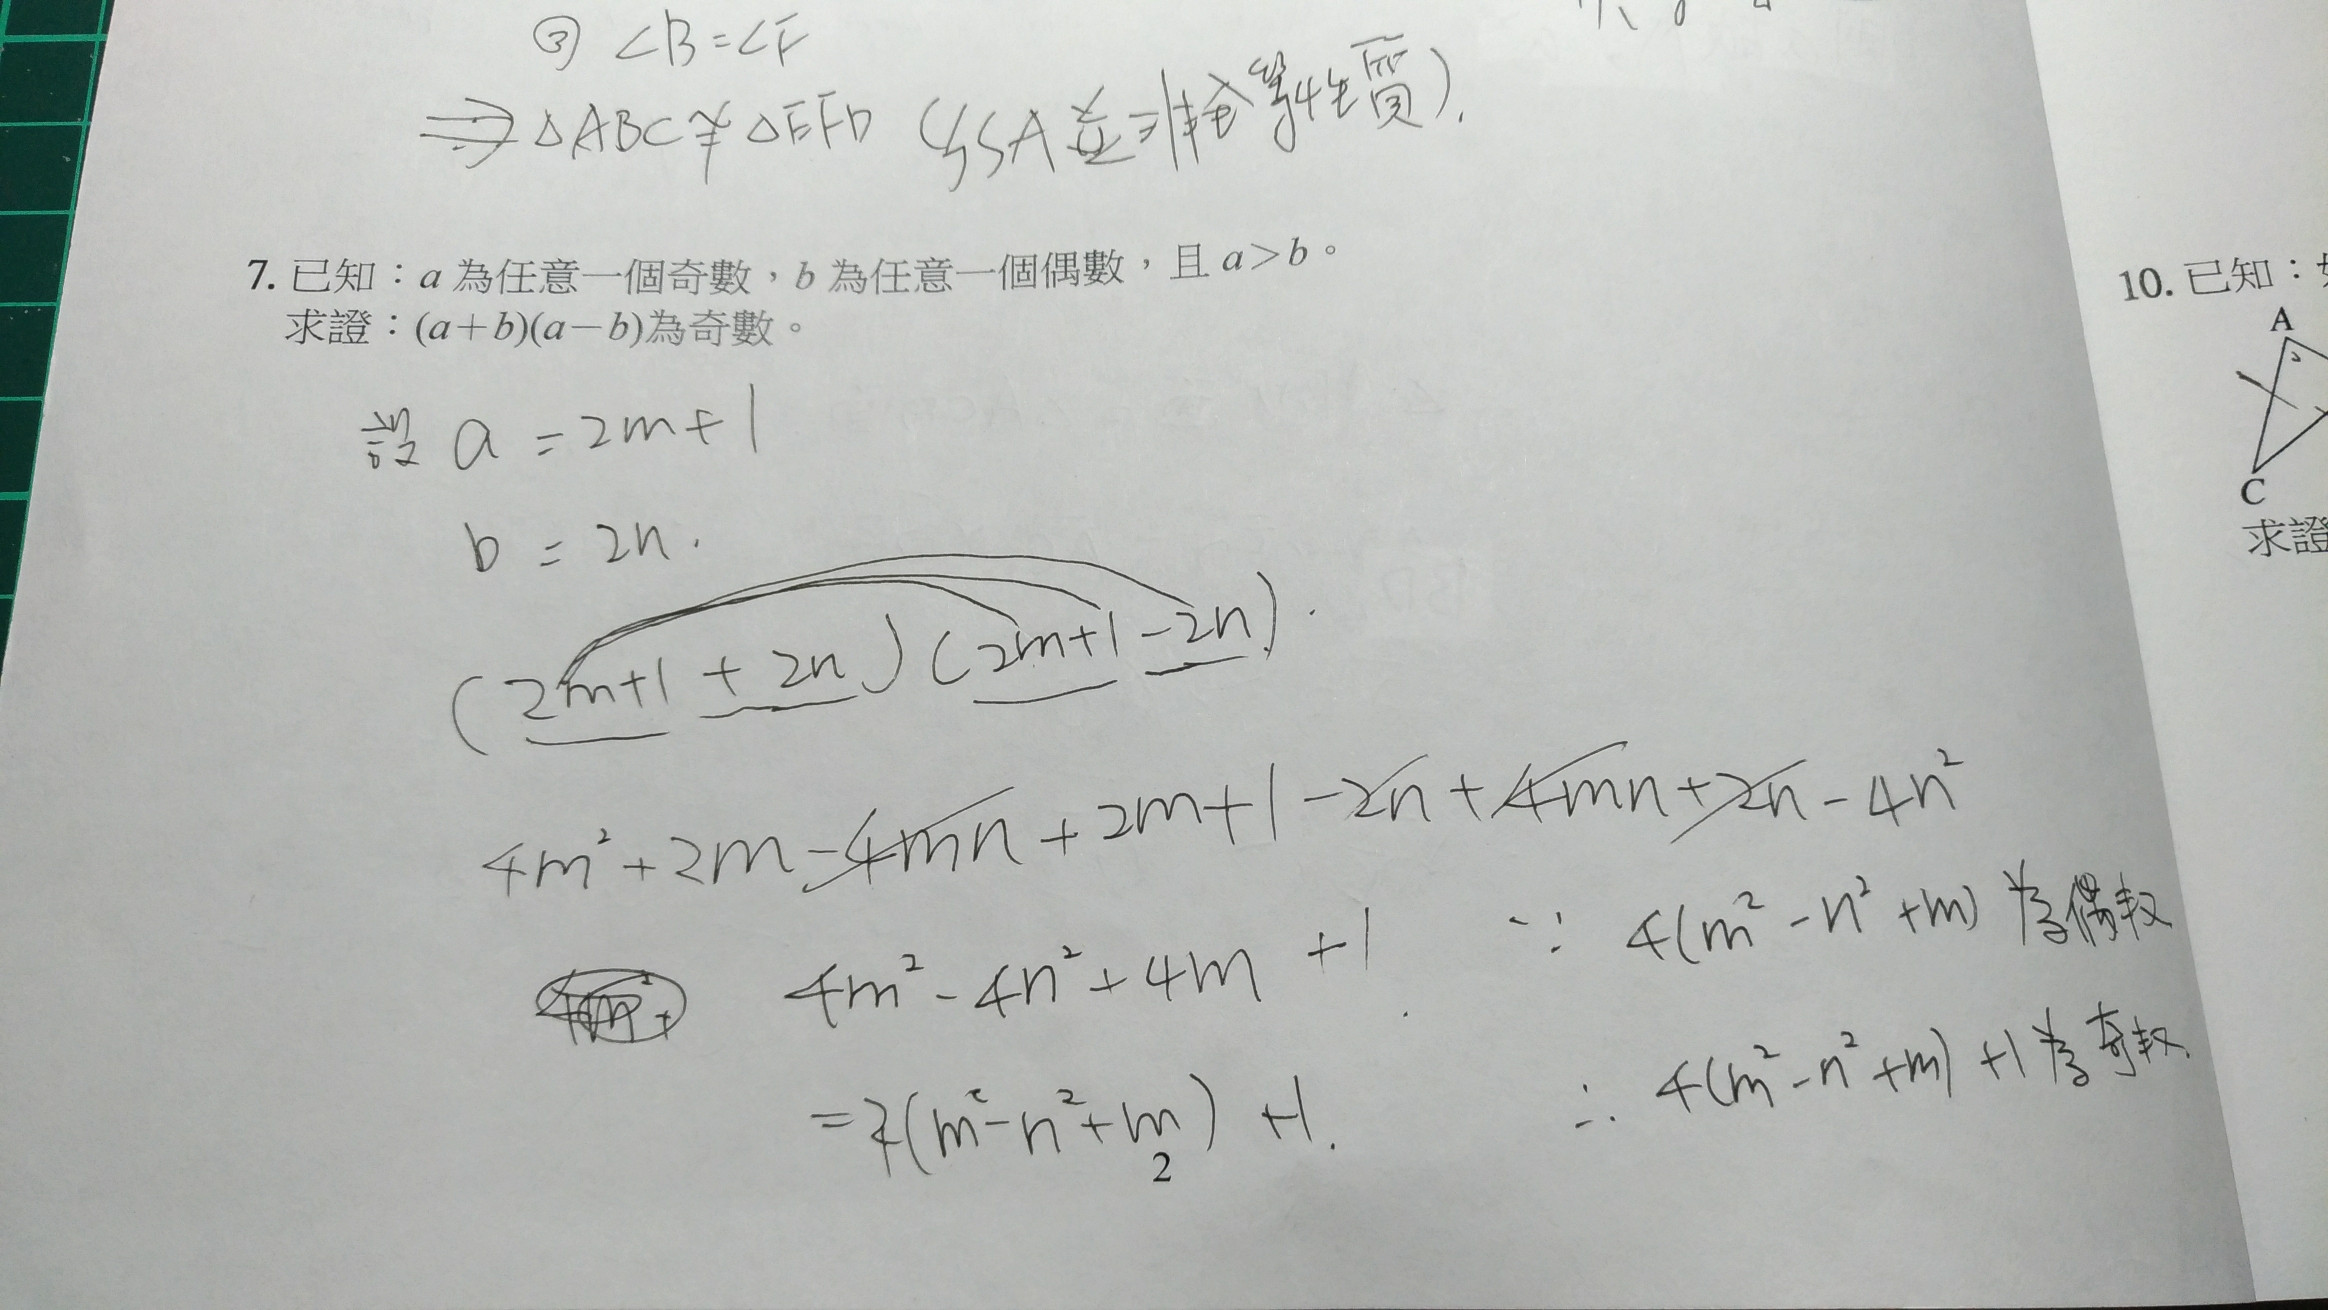 ③ ∠B=∠F
⇒ △ABC≇△EFD (SSA並非全等性質).
7. 已知：a 為任意一個奇數，b 為任意一個偶數，且 a＞b。
求證：(a＋b)(a－b)為奇數。
設 a = 2m+1
b = 2n.
(2m+1 + 2n) (2m+1 - 2n).
4m²+2m-4mn+2m+1-2n+4mn+2n-4n²
4m²-4n²+4m +1.
=4(m²-n²+m) +1.
∵ 4(m²-n²+m) 為偶数
∴ 4(m²-n²+m)+1為奇数.
2
10. 已知：
A
C
求證